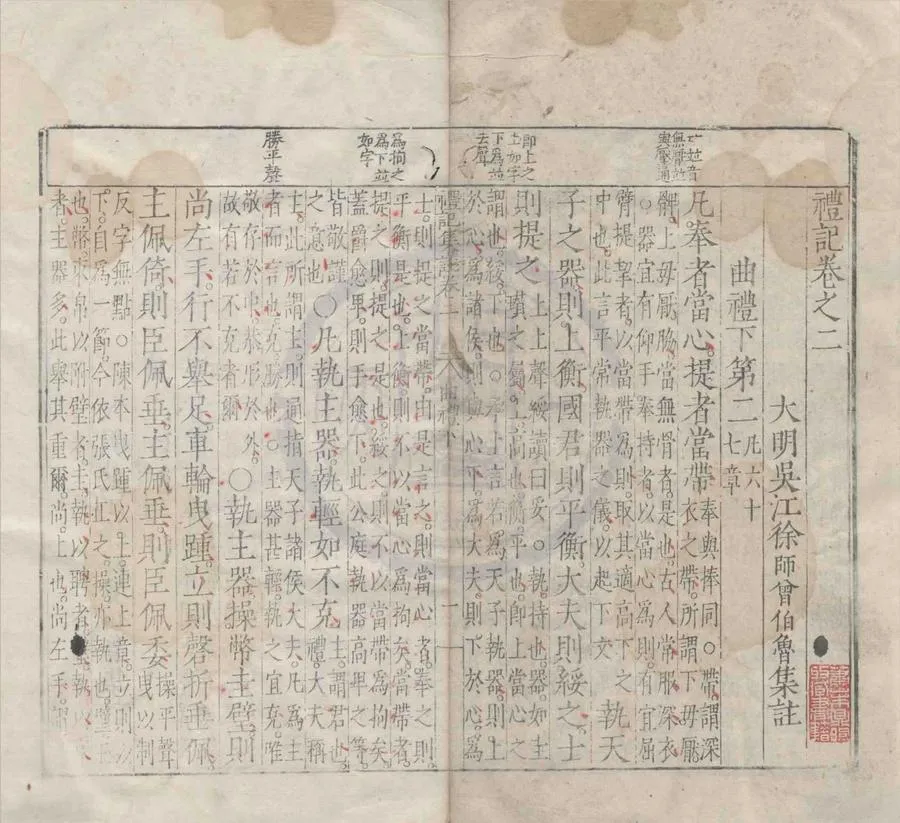 禮記卷之二
大明吳江徐師曾伯魯集註
曲禮下第二
凡六十
七章
凡奉者當心提者當帶
奉與捧同○帶謂深
衣之帶所謂下毋厭
髀上毋厭脅當無骨者是也古人常服深衣
○器宜有仰手奉持者以當心為則有宜屈
臂提挈者以當帶為則取其適高下之
中也此言平常執器之儀以起下文
執天
子之器則上衡國君則平衡大夫則綏之士
則提之
上上聲綏讀曰妥○執持也器如圭
瓚之屬上高也衡平也即上當心之
謂也綏下也○承上言若為天子執器則上
於心為諸侯則與心平為大夫則下於心為
亡並音
無髀並
與壓通
即上之
上如字
下為並
去聲
禮記集註卷二
曲禮下
一
士則提之當帶由是言之則當心者奉之則
平衡是也上衡則不以當心為拘矣當帶者
提之則提之是也綏之則不以當帶為拘矣
蓋爵愈卑則手愈下此公庭執器高卑之等
皆敬謹
之意也
○凡執主器執輕如不克
主謂君也
禮大夫稱
主此所謂主則通指天子諸侯大夫凡為主
者而言也克勝也○主器甚輕執之宜克唯
敬存於中恭形於外
故有若不克者爾
○執主器操幣圭璧則
尚左手行不舉足車輪曳踵立則磬折垂佩
主佩倚則臣佩垂主佩垂則臣佩委
操平聲
曳以制
反字無點○陳本曳踵以上連上章立則以
下自為一節今依張氏正之操亦執也
也幣束帛以附璧者圭執以聘者璧執以
者主器多此舉其重爾尚上也尚左手謂
為拘之
為下並
如字
勝平聲